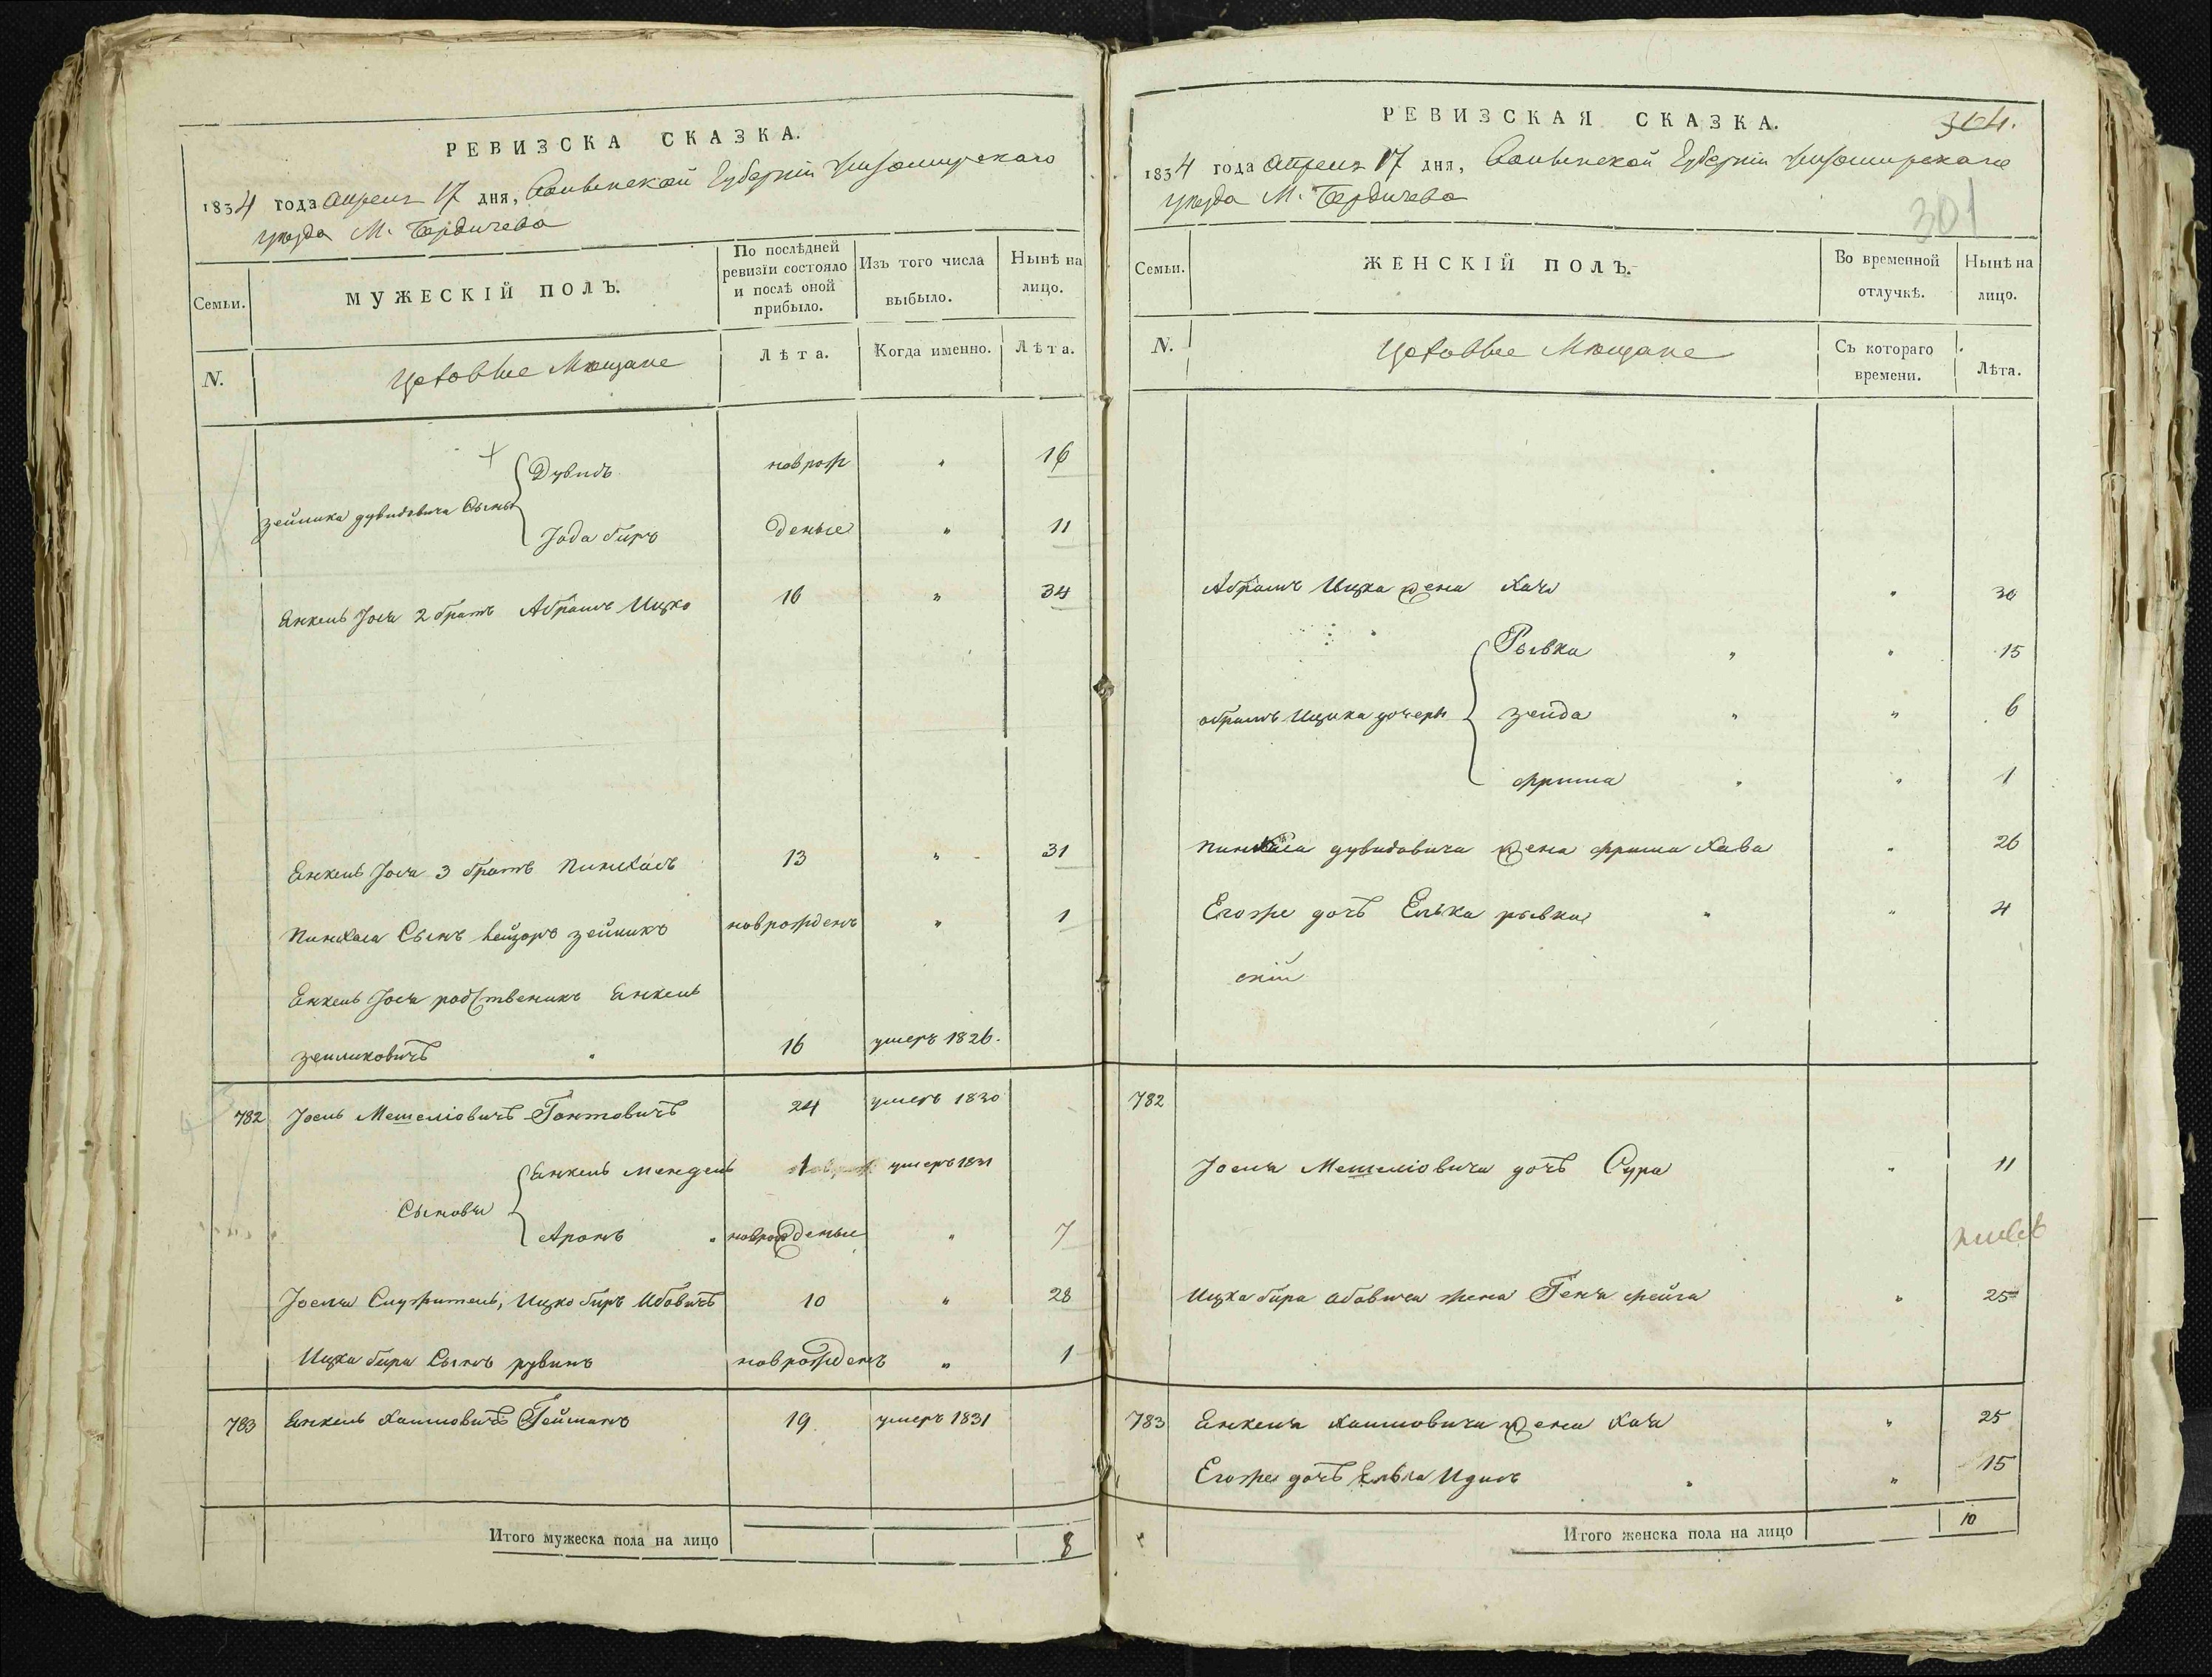 РЕВИЗСКА СКАЗКА.
1834 года апреля 17 дня, Волынской Губерніи Житомирскаго
уезда М. Бердичева
Семьи.
МУЖЕСКІЙ ПОЛЪ.
По послѣдней
ревизіи состояло
и послѣ оной
прибыло.
Изъ того числа
выбыло.
Нынѣ на
лицо.
N.
Цеховые Мещане
Лѣта.
Когда именно.
Лѣта.
Дувидъ новрож „ 16
Зейлика дувидовича Сыны
Іода биръ деные „ 11
Енкель Іося 2 братъ Абрамъ Ицко 16 „ 34
Енкель Іося 3 братъ Пинхасъ 13 „ 31
Пинхаса Сынъ Лейзоръ зейликъ новрожденъ „ 1
Енкель Іося родственикъ Енкель
зейликовичъ „ 16 умеръ 1826.
782 Іось Мешеліовичъ 24 умеръ 1830
Енкель Мендель 1 умеръ 1831
Сыновя
Аронъ „ новрожденые „ 7
Служитель, Ицко биръ 10 „ 28
Ицка бира Сынъ рувинъ новрожденъ „ 1
783 Енкель Хаимовичъ Гейманъ 19 умеръ 1831
Итого мужеска пола на лицо 8
РЕВИЗСКАЯ СКАЗКА.
304.
1834 года апреля 17 дня, Волынской Губерніи Житомирскаго
уезда М. Бердичева
301
Семьи.
ЖЕНСКІЙ ПОЛЪ.
Во временной
отлучкѣ.
Нынѣ на
лицо.
N.
Цеховые Мещане
Съ котораго
времени.
Лѣта.
Абрамъ Ицка жена Хая „ 30
Рывка „ „ 15
абрамъ Ицика дочеры зейда „ „ 6
фрима „ „ 1
Пинхаса дувидовича жена фрима Хава „ 26
Егоже дочъ Елька рывка „ „ 4
782
Мешеліовича дочъ Сура „ 11
Ицка бира жена Геня фейга „ 25
783 Енкеля Хаимовича жена Хая „ 25
Егоже дочъ „ „ 15
Итого женска пола на лицо 10